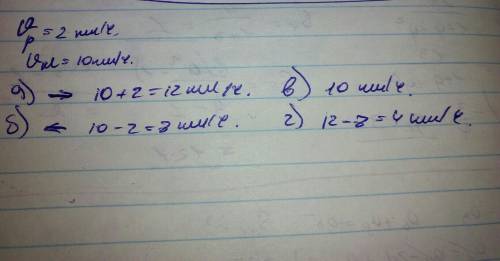 υр = 2 км/ч.
υм = 10 км/ч.
а) → 10+2=12 км/ч. в) 10 км/ч.
б) ← 10-2=8 км/ч. г) 12-8=4 км/ч.